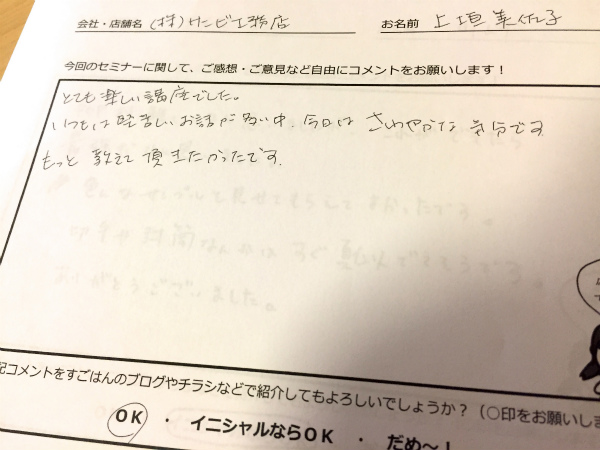 会社・店舗名 (株)ケンビ工務店 お名前 上垣 美佐子
今回のセミナーに関して、ご感想・ご意見など自由にコメントをお願いします！
とても楽しい講座でした。
いつもは堅苦しいお話が多い中、今日は さわやかな 気分です
もっと 教えて 頂きたかったです.
記コメントをすごはんのブログやチラシなどで紹介してもよろしいでしょうか？（○印をお願いしま
OK ・ イニシャルならOK ・ だめ〜！